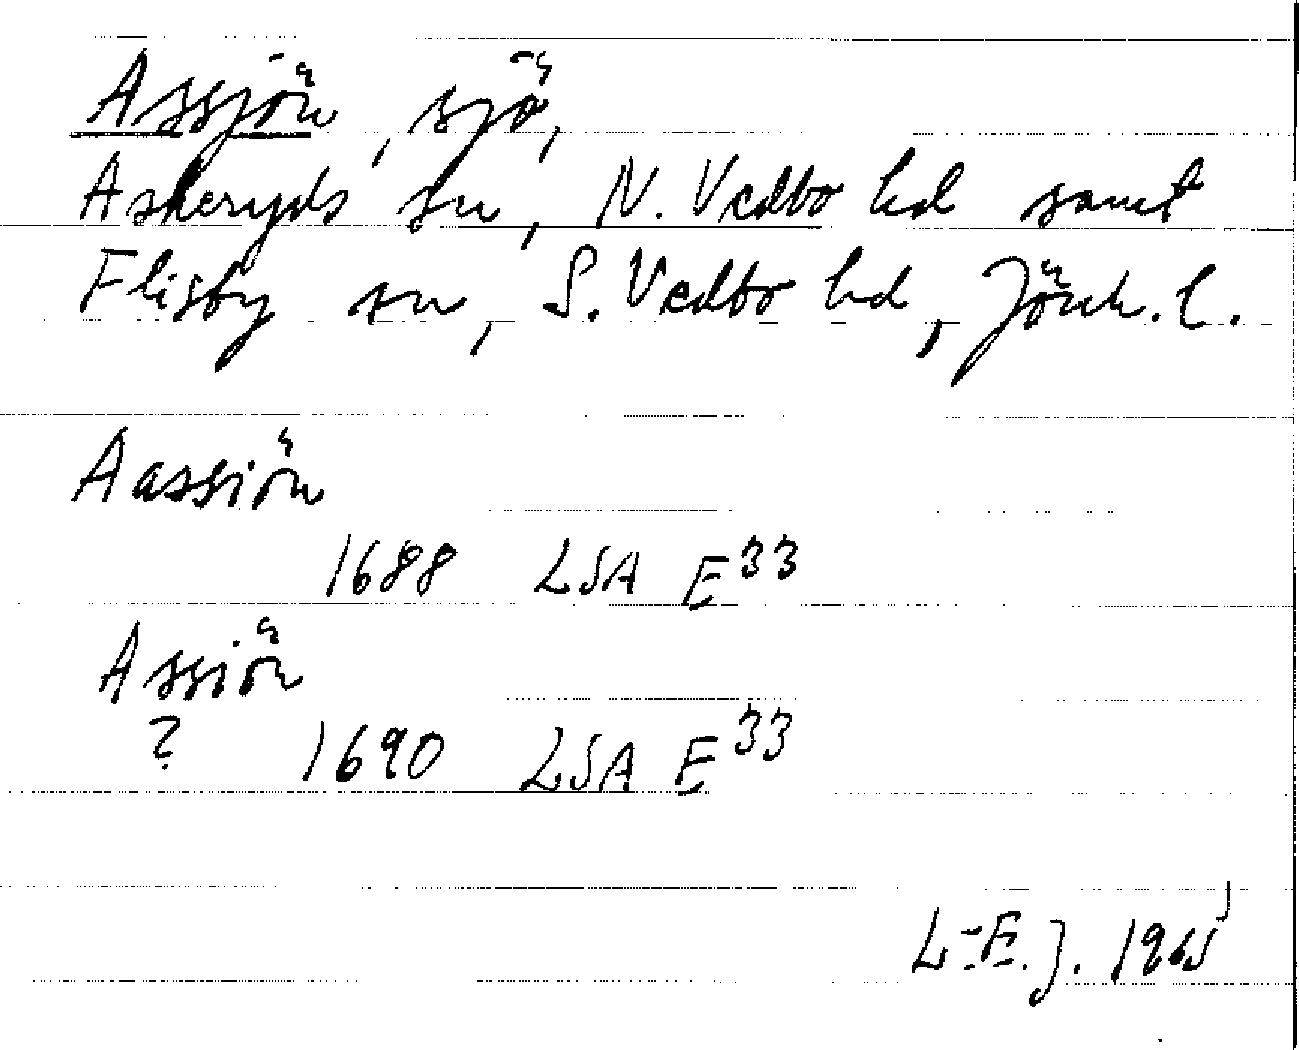 Assjön, sjö,
Askeryds sn, N. Vedbo hd samt
Flisby sn, S. Vedbo hd, Jönk. l.
Aassiön
1688 LSA E33
Assiön
? 1690 LSA E33
L-E. J. 1965